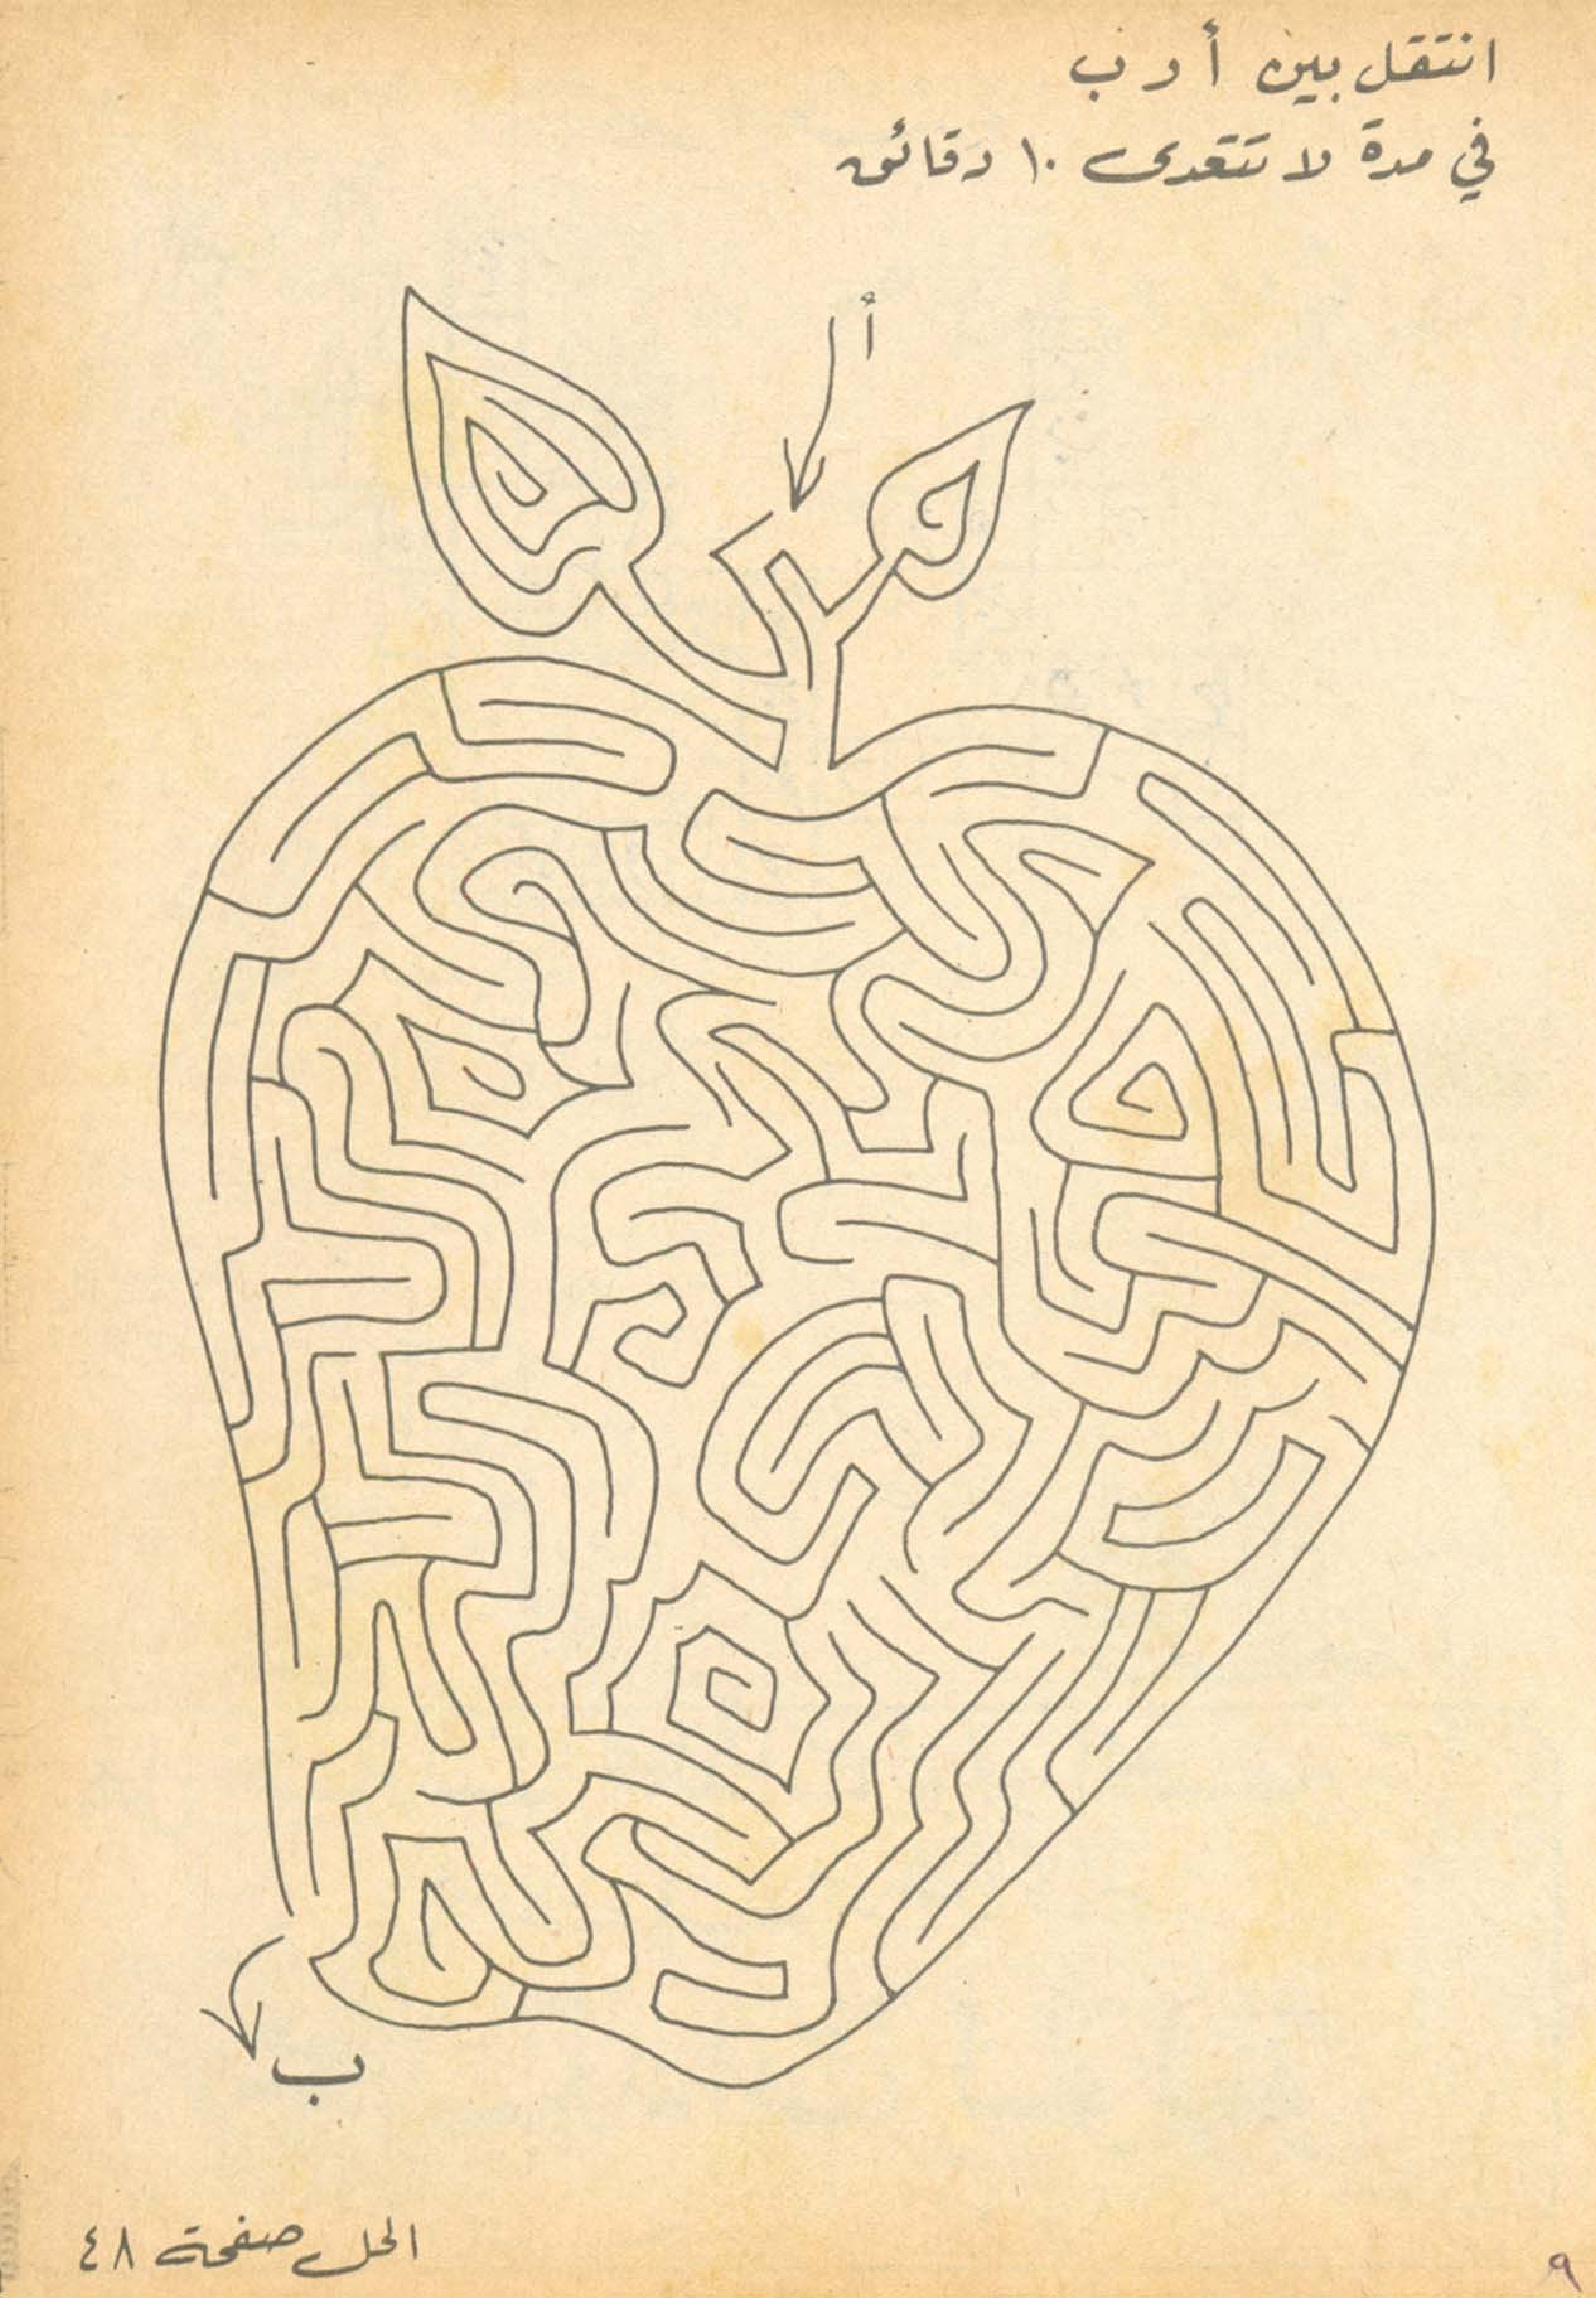 انتقل بين أ و ب
في مدة لا تتعدى ١٠ دقائق
أ
ب
الحل صفحة ٤٨
٩